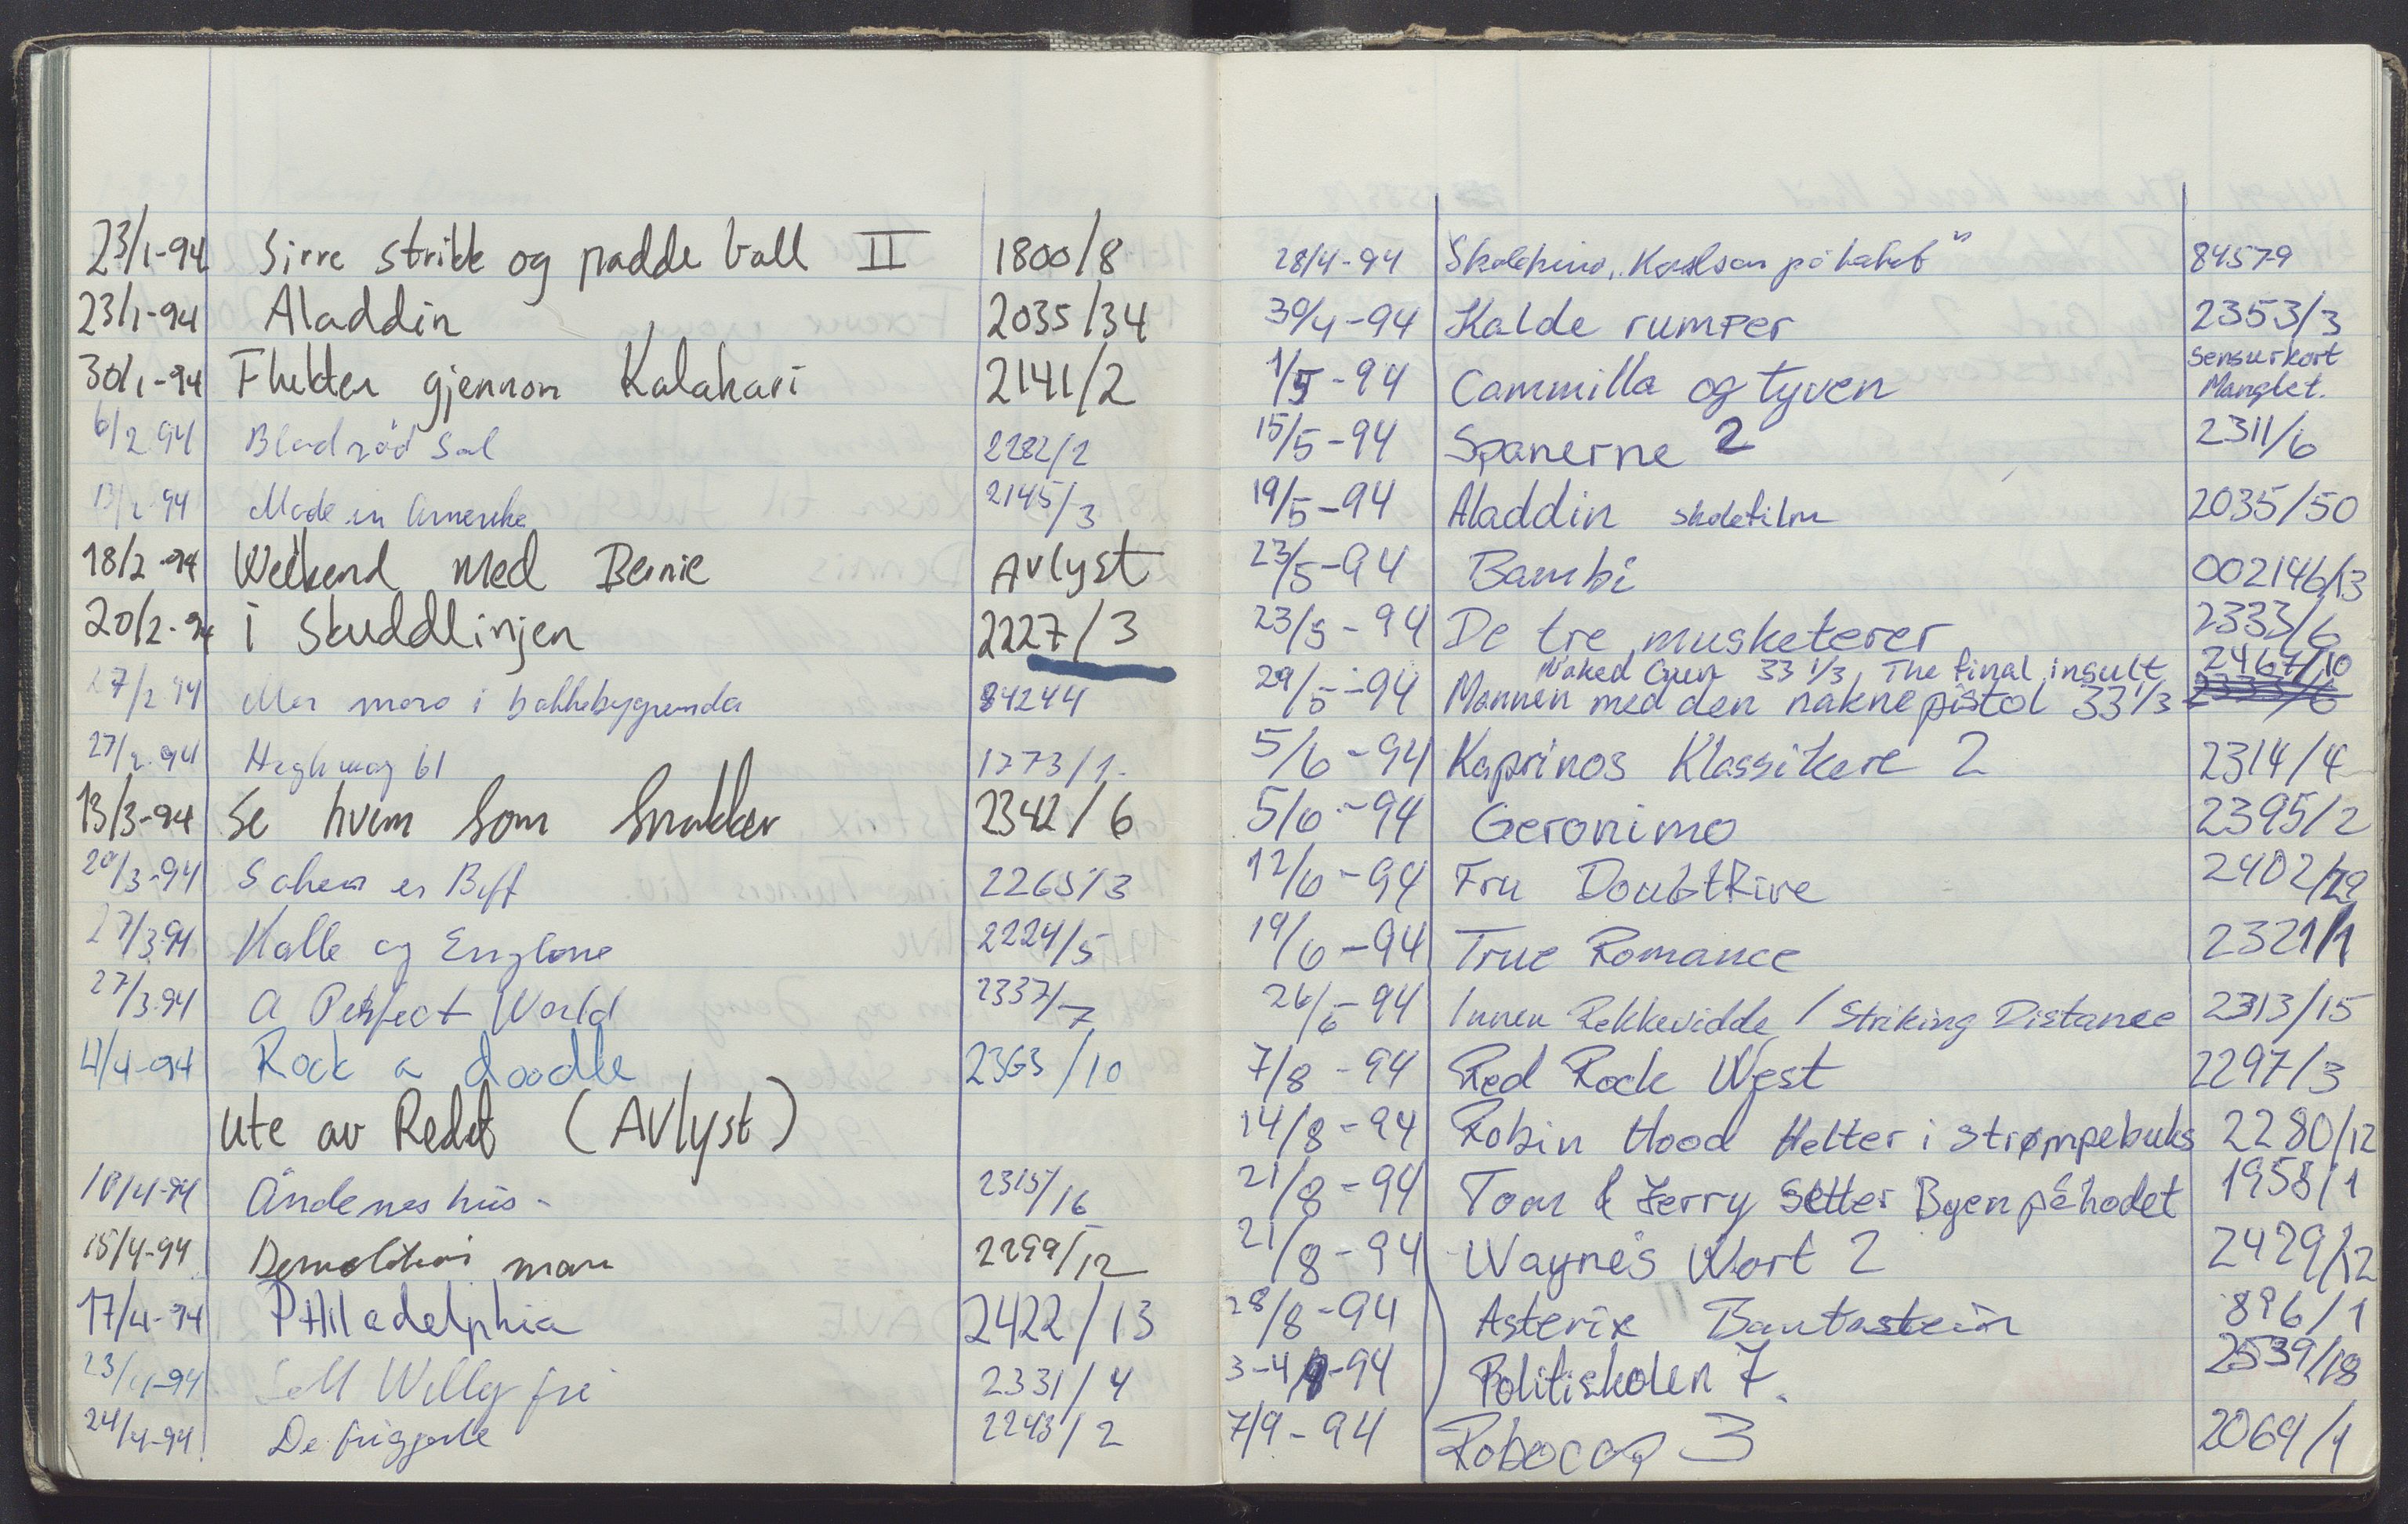 23/1-94 Sirre strikk og padde ball II 1800/8
23/1-94 Aladdin 2035/34
30/1-94 Flukten gjennom Kalahari 2141/2
6/2 94 Blodrød Sol 2282/2
13/2 94 Made in Amerika 2145/3
18/2-94 Weekend med Bernie Avlyst
20/2-94 i skuddlinjen 2227/3
27/2 94 Mer moro i bakkebygrenda 84244
27/2.94 Highway 61 1773/1.
13/3-94 Se hvem som snakker 2342/6
20/3-94 Saken er Biff 2265/3
27/3.94 Kalle og Englene 2224/5
27/3.94 A Perfect World 2337/7
4/4-94 Rock a doodle 2363/10
Ute av Redet (Avlyst)
10/4-94 Åndenes hus - 2315/16
15/4-94 Demolition man 2299/12
17/4-94 Philadelphia 2422/13
23/4-94 Sett Willy fri 2331/4
24/4-94 De frigjorte 2243/2
28/4-94 Skolekino „Karlson på taket" 84579
30/4-94 Kalde rumper 2353/3
1/5-94 Cammilla og tyven Sensurkort
Manglet.
15/5-94 Spanerne 2 2311/6
19/5-94 Aladdin skolefilm 2035/50
23/5-94 Bambi 002146/13
23/5-94 De tre musketerer 2333/6
Naked Gun 33 1/3 The final insult 2467/10
29/5-94 Mannen med den nakne pistol 33 1/3 2333/6
5/6-94 Kaprinos Klassikere 2 2314/4
5/6-94 Geronimo 2395/2
12/6-94 Fru Doubtfire 2402/29
19/6-94 True Romance 2321/1
26/6-94 Innen Rekkevidde / Striking Distance 2313/15
7/8-94 Red Rock West 2297/3
14/8-94 Robin Hood Helter i strømpebuks 2280/12
21/8-94 Tom & Jerry Setter Byen på hodet 1958/1
21/8-94 Wayne's Wort 2 2429/12
28/8-94 Asterix Bautastein 896/1
3-4/9-94 Politiskolen 7. 2539/18
7/9-94 Robocop 3 2069/1